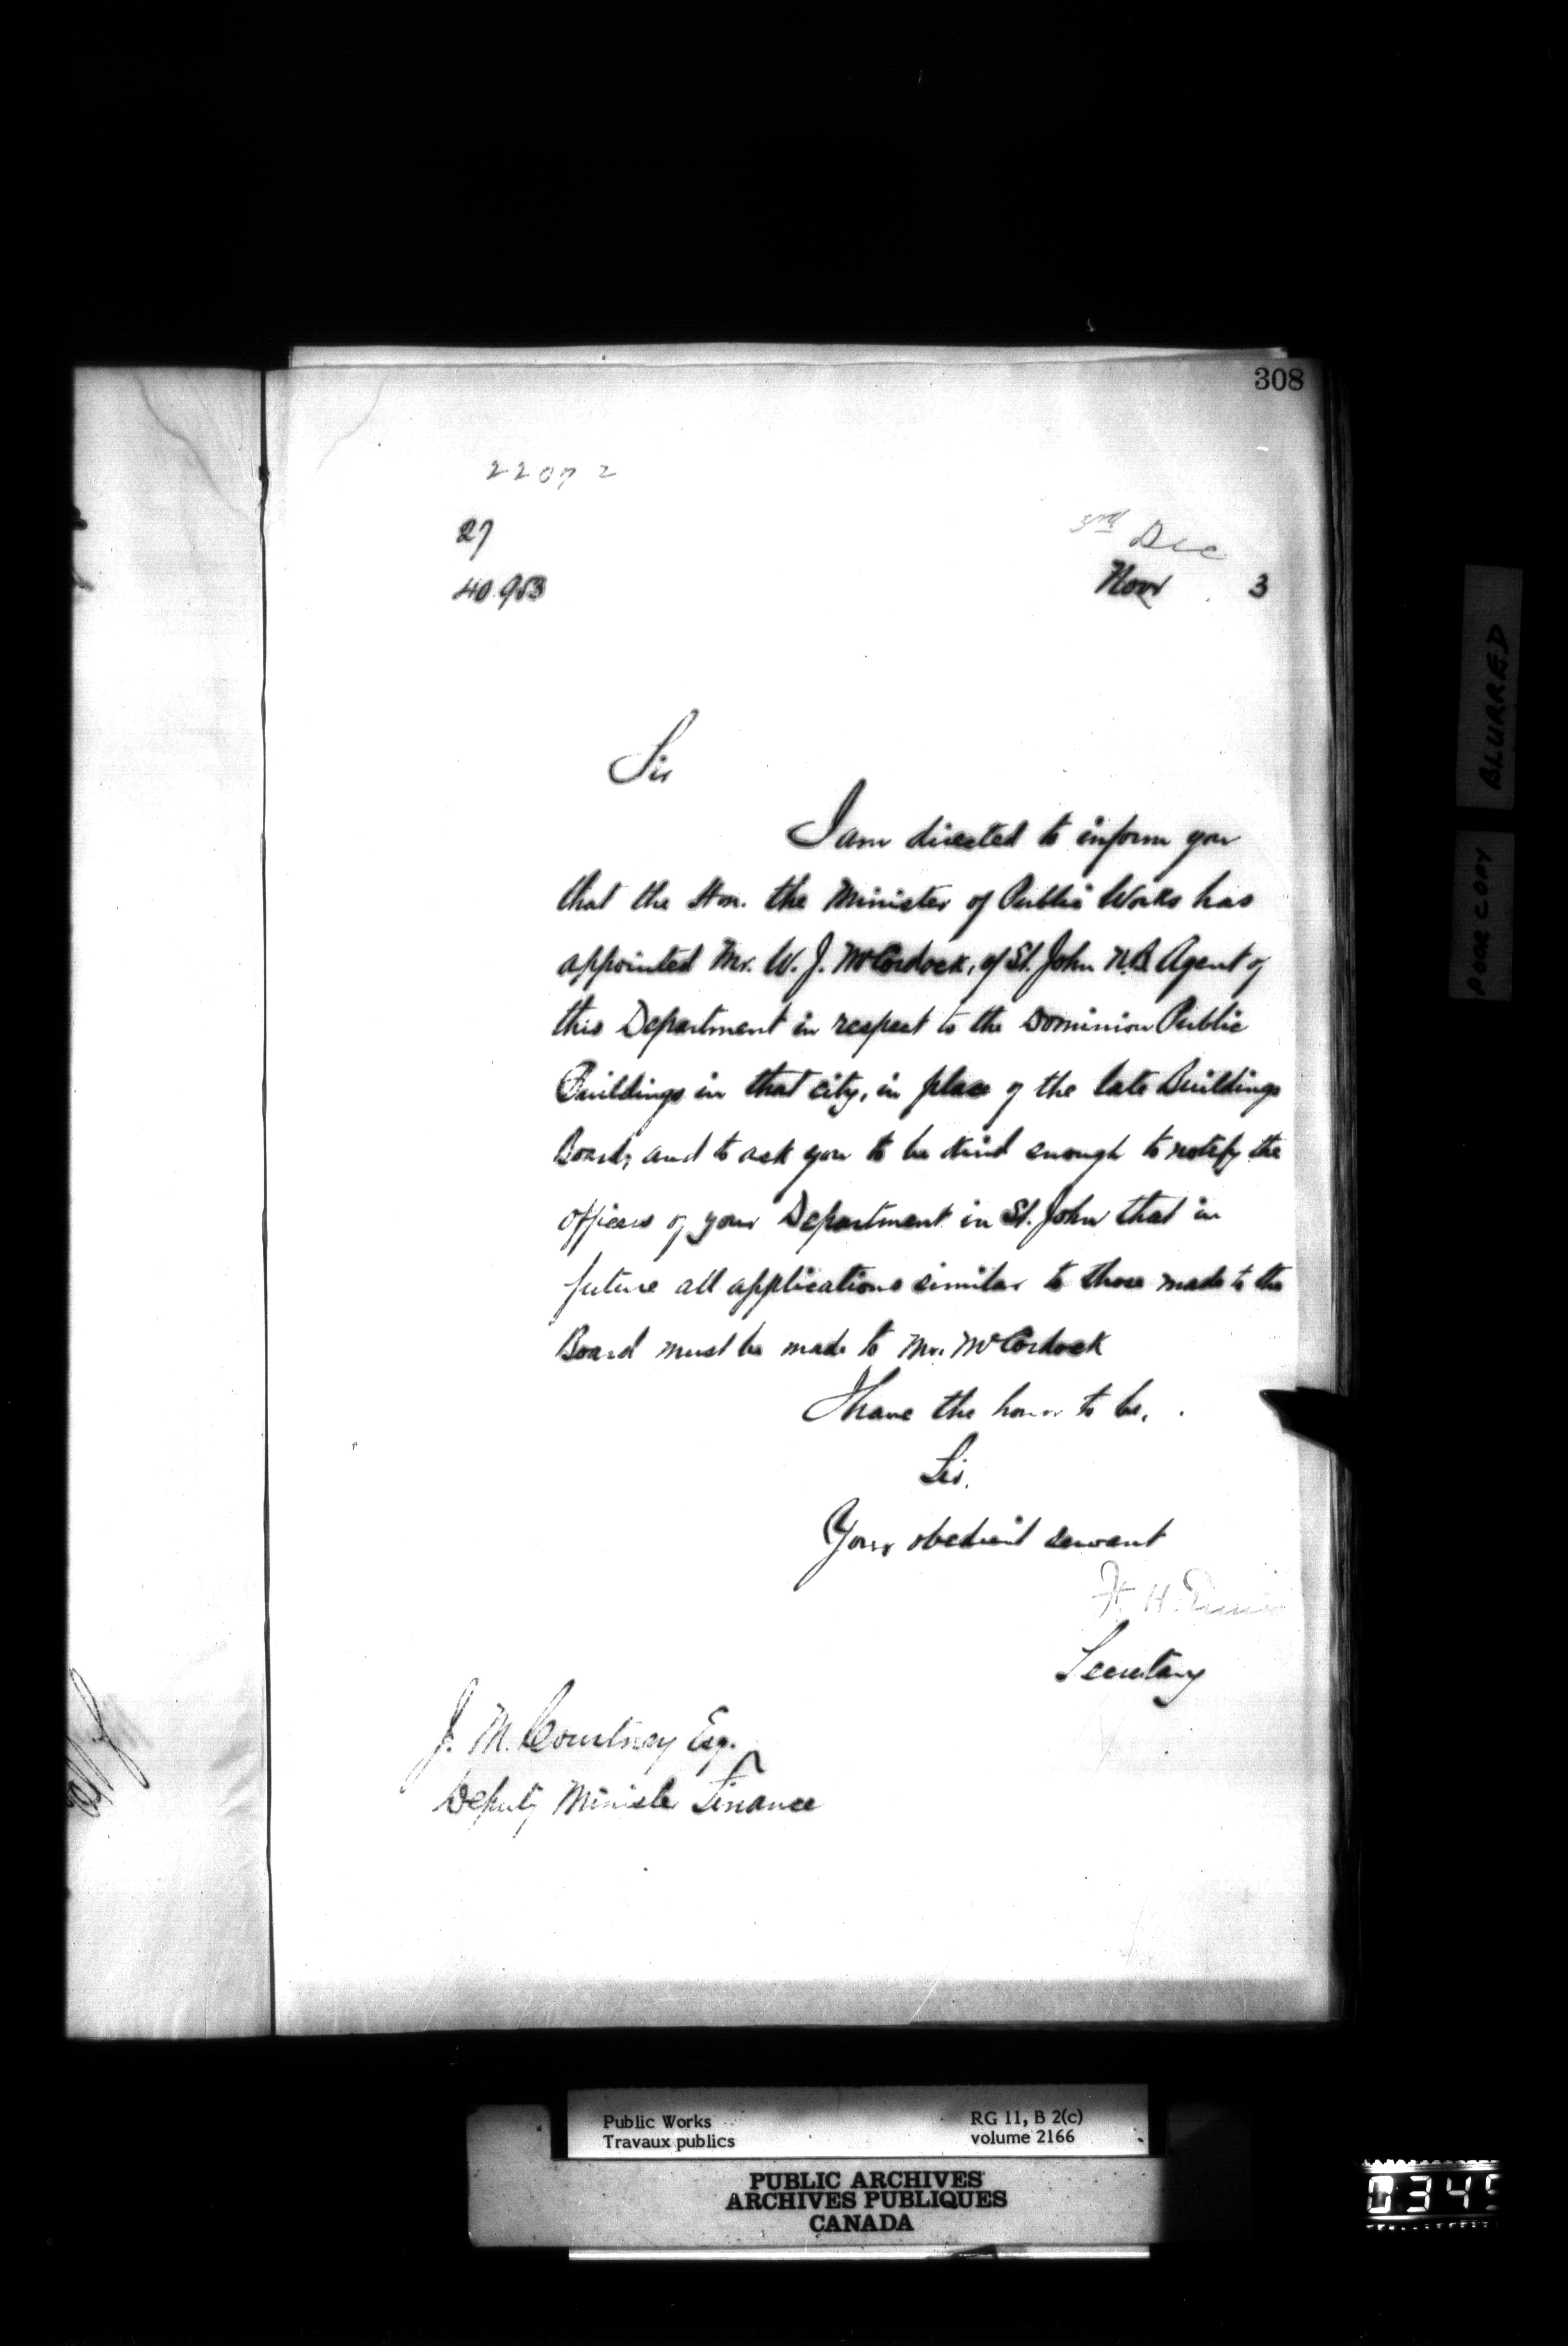 308
22072
27
40.953
3rd Dec
Novr 3
Sir
I am directed to inform you
that the Hon. the Minister of Public Works has
appointed Mr. W. J. McCordock, of St. John N.B. Agent of
this Department in respect to the Dominion Public
Buildings in that city, in place of the late Buildings
Board; and to ask you to be kind enough to notify the
officers of your Department in St. John that in
future all applications similar to those made to the
Board must be made to Mr. McCordock
I have the honor to be,
Sir,
Your obedient servant
F. H. Ennis
Secretary
J. M. Courtney Esq.
Deputy Minister Finance
BLURRED
POOR COPY
Public Works
Travaux publics
RG 11, B 2(c)
volume 2166
PUBLIC ARCHIVES
ARCHIVES PUBLIQUES
CANADA
0345